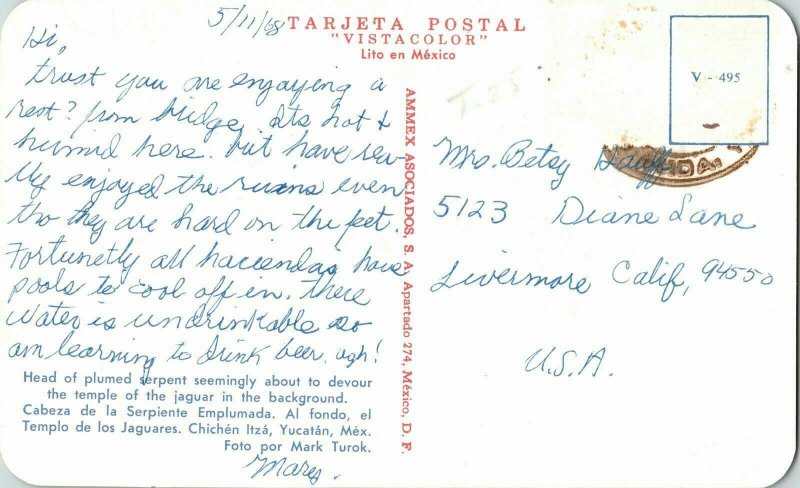 5/11/68
TARJETA POSTAL
"VISTACOLOR"
Lito en México
Hi,
trust you are enjoying a
rest? from bridge. Its hot &
humid here. but have rea-
lly enjoyed the ruins even
tho they are hard on the feet.
Fortunetly all haciendas have
pools to cool off in. There
water is undrinkable so
am learning to drink beer. ugh!
Head of plumed serpent seemingly about to devour
the temple of the jaguar in the background.
Cabeza de la Serpiente Emplumada. Al fondo, el
Templo de los Jaguares. Chichén Itzá, Yucatán, Méx.
Foto por Mark Turok.
Mary.
AMMEX ASOCIADOS, S. A. Apartado 274, México, D. F.
V - 495
Mrs. Betsy Hauff
5123 Diane Lane
Livermore Calif, 94550
U.S.A.